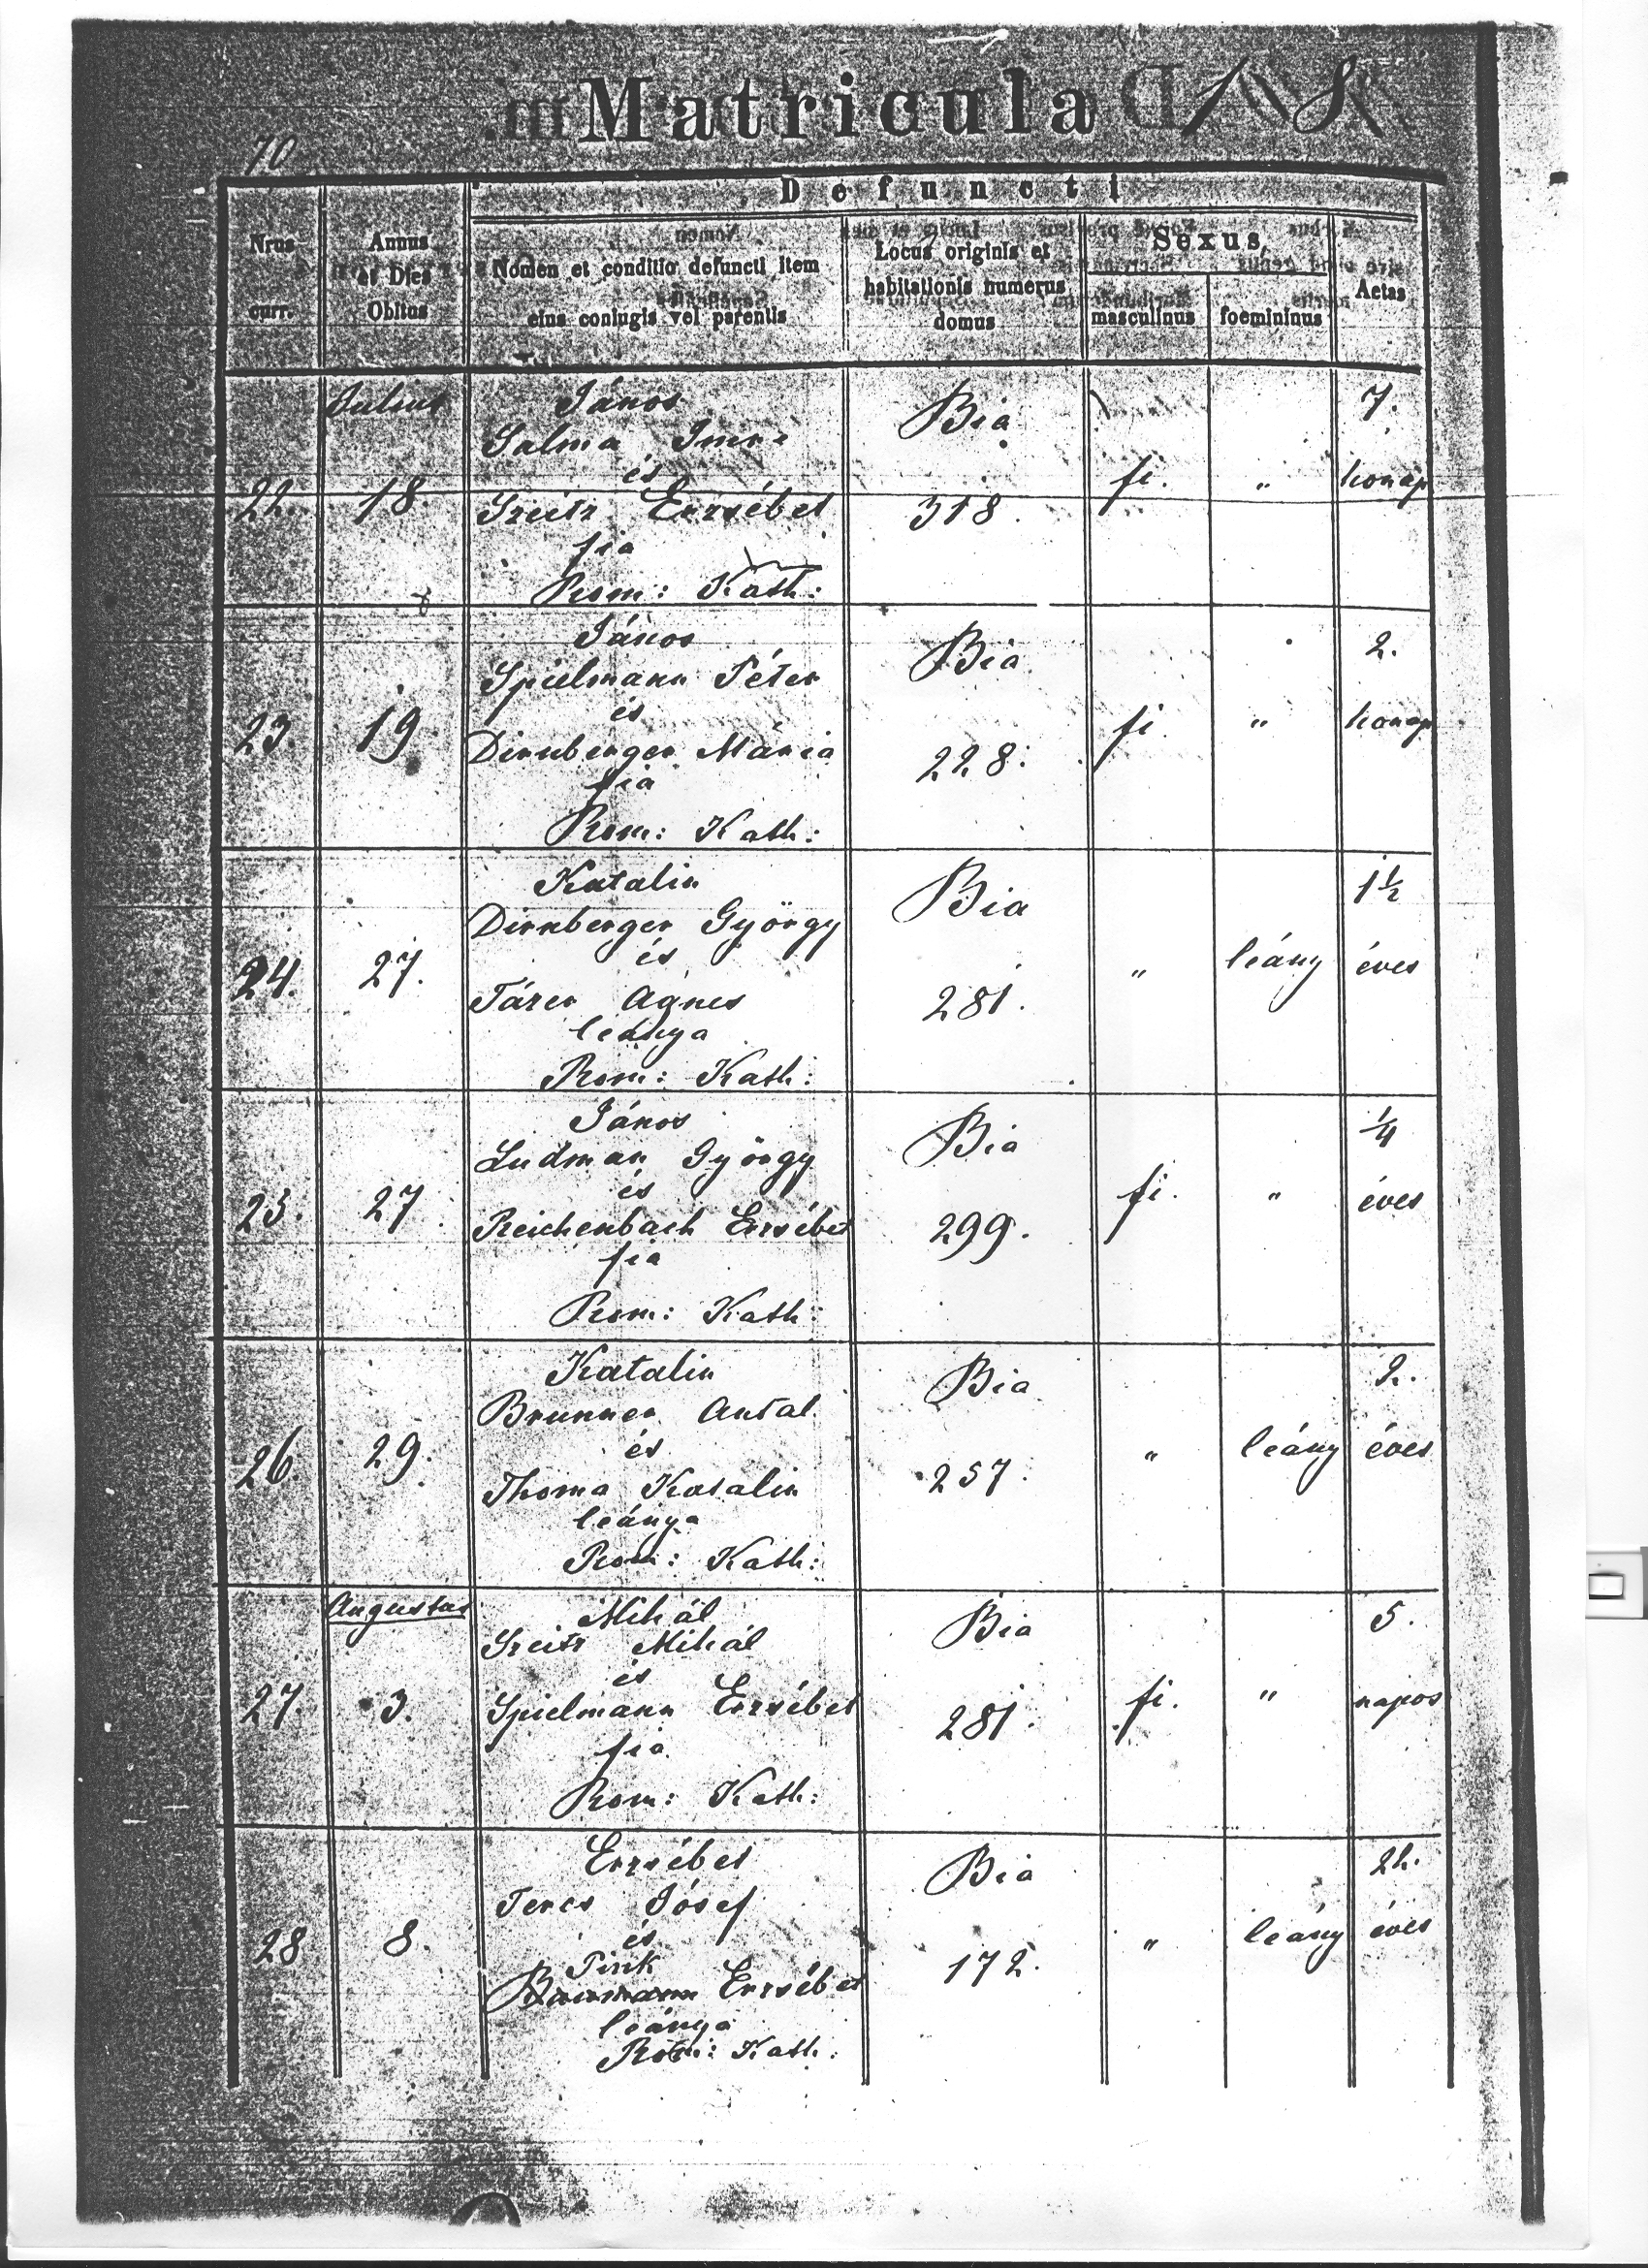 Matricula
70
Defuncti
Nrus curr.
Annus et Dies Obitus
Nomen et conditio defuncti item eius coniugis vel parentis
Locus originis et habitationis numerus domus
Sexus
masculinus
foemininus
Aetas
Julius
János
Salma Imre
és
22. 18. Erzsébet
fia
Rom: Kath:
Bia
318.
fi. "
7.
honap
János
Spielmann Péter
és
23. 19. Dirnberger Mária
fia
Rom: Kath:
Bia
228.
fi. "
2.
honap
Katalin
Dirnberger György
és
24. 27. Tárer Agnes
leánya
Rom: Kath:
Bia
281.
" leány
1½
éves
János
Ludman György
és
25. 27. Reichenbach Erzsébet
fia
Rom: Kath:
Bia
299.
fi. "
¼
éves
Katalin
Brunner Antal
és
26. 29. Thoma Katalin
leánya
Rom: Kath:
Bia
257.
" leány
2.
éves
Augustus
Mihál
Mihál
és
27. 3. Spielmann Erzsébet
fia
Rom: Kath:
Bia
281.
fi. "
5.
napos
Erzsébet
Jósef
és
28 8. Erzsébet
leánya
Rom: Kath:
Bia
172.
" leány
éves